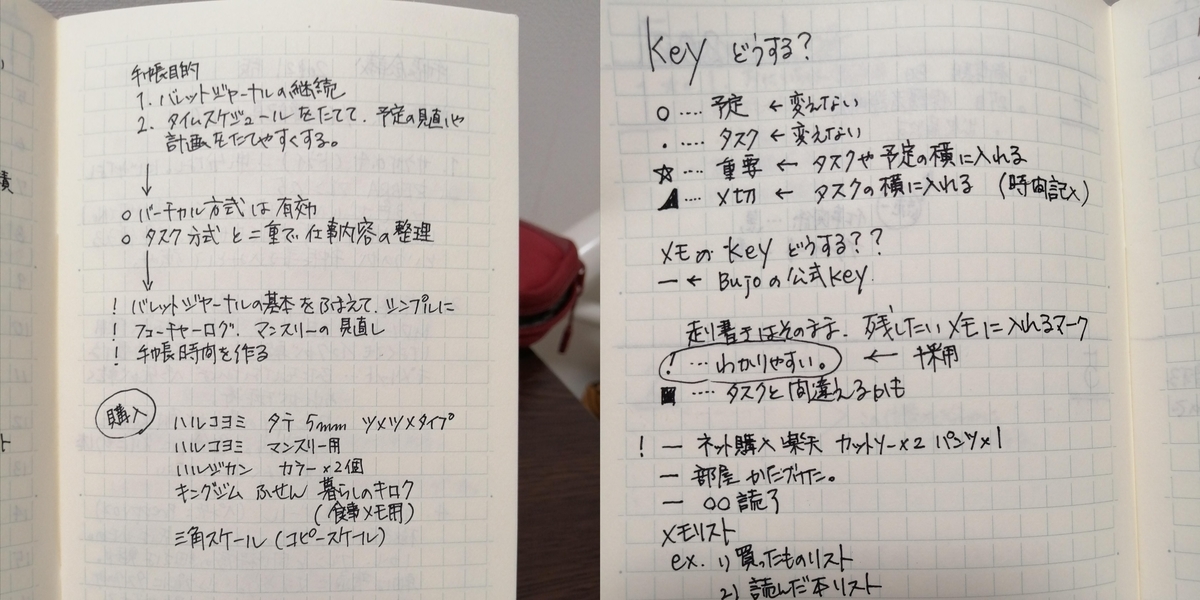 手帳目的
1. バレットジャーナルの継続
2. タイムスケジュールをたてて、予定の見直しや
計画をたてやすくする。
↓
○ バーチカル方式は有効
○ タスク方式と二重で仕事内容の整理
↓
! バレットジャーナルの基本をふまえて、シンプルに
! フューチャーログ、マンスリーの見直し
! 手帳時間を作る
購入
ハルコヨミ タテ 5mm ツメツメタイプ
ハルコヨミ マンスリー用
ハルジカン カラー×2個
キングジム ふせん 暮らしのキロク
(食事メモ用)
三角スケール (コピースケール)
key どうする?
○ …. 予定 ← 変えない
・ …. タスク ← 変えない
☆ …. 重要 ← タスクや予定の横に入れる
◢ …. 〆切 ← タスクの横に入れる (時間記入)
メモの key どうする??
ー ← Bujoの公式key.
走り書きはそのまま、残したいメモに入れるマーク
! … わかりやすい。 ← 採用
■ …. タスクと間違えるかも
! ー ネット購入 楽天 カットソー×2 パンツ×1
ー 部屋 かたづけた。
ー ○○読了
メモリスト
ex. 1) 買ったものリスト
2) 読んだ本リスト